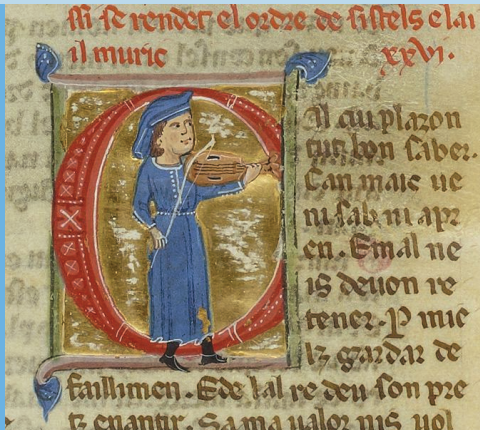 ssi se rendet el ordre de sistels e lai
il muric xxvi.
Cil cui plazon
tuit bon saber.
Can mais ue
ni sab ni apr
en. E mal ne
is deuon re
tener. P mie
lz gardar de
faillimen. E de lal re deu son pre
tz enantir. Sa ma ualor nis uol